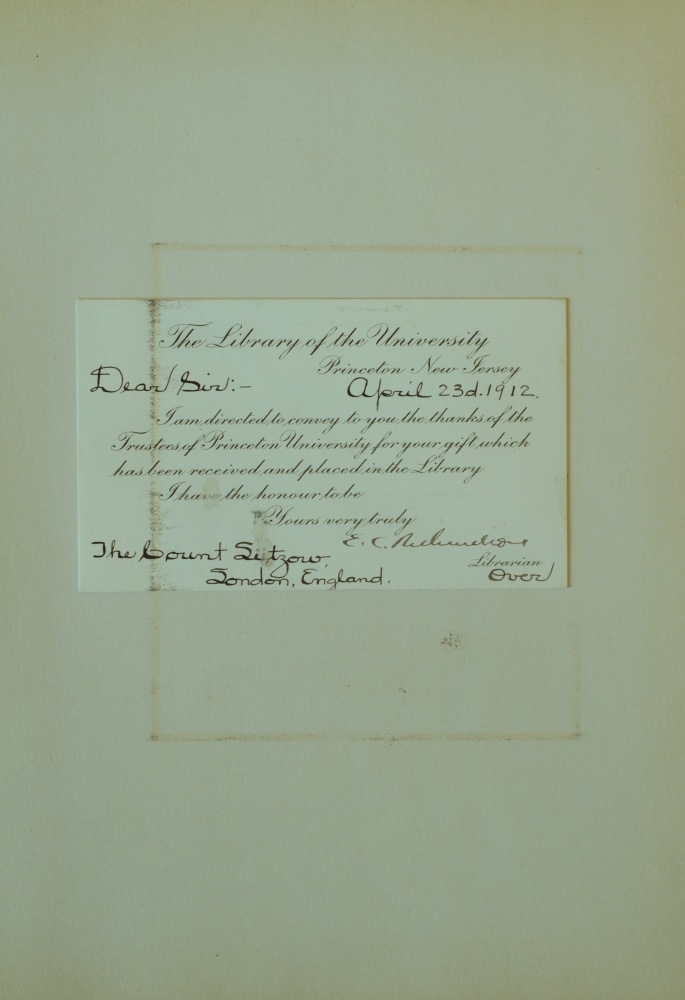 The Library of the University
Princeton New Jersey
Dear Sir:-
April 23d. 1912.
I am directed to convey to you the thanks of the
Trustees of Princeton University for your gift which
has been received and placed in the Library
I have the honour to be
Yours very truly
E. C. Richardson
The Count Lützow,
Librarian
London, England.
Over